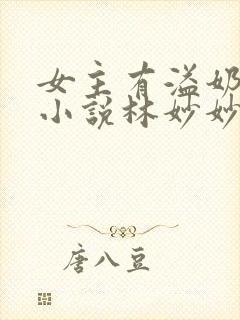 女主有溢奶
小說林妙妙
唐八豆